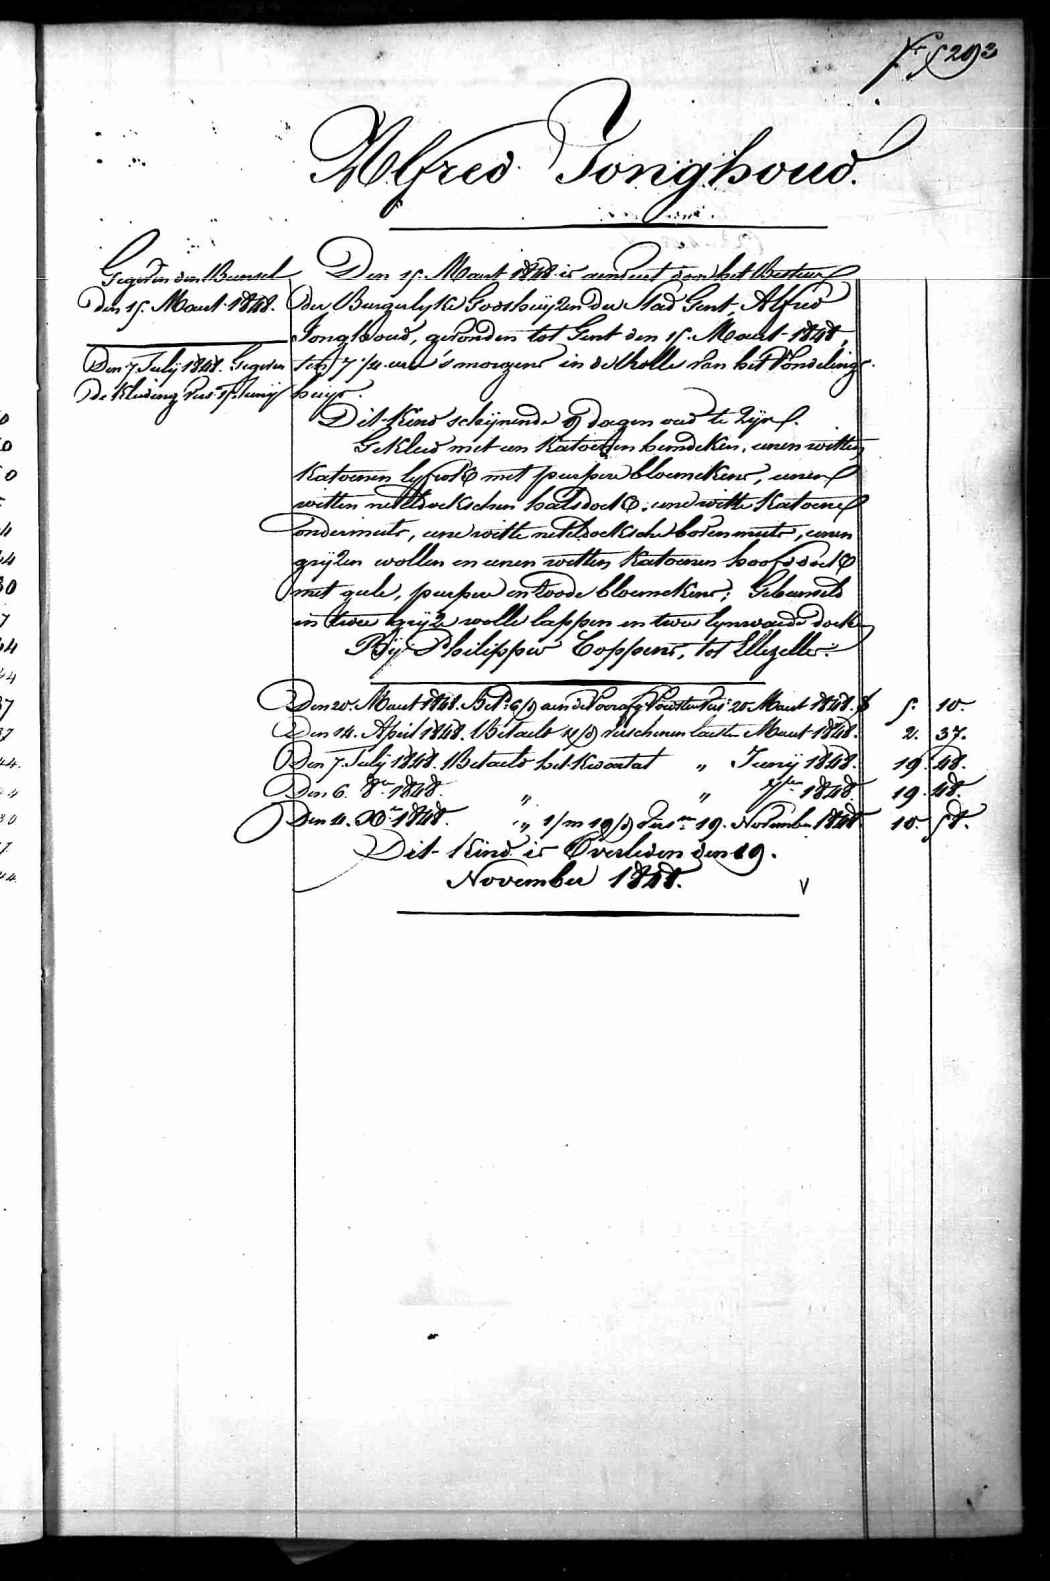 293
Alfred Jonghoud.
Gegeven den Bunsel
den 15. Maart 1848.
Den 7 July 1848. Gegeven
de Kleding Vers Juny
Den 15. Maart 1848 is aenveert door het Bestuur
der Burgerlyke Godshuyzen der Stad Gent, Alfred
Jonghoud, gevonden tot Gent den 15. Maart 1848,
ten 7 1/4 ure 's morgens in de Rolle van het Vondelings
huys.
Dit Kind schynende 8 dagen oud te Zyn.
Gekleed met een Katoenen hemdeken, eenen witten
Katoenen lyfrok met purpere bloemekens, eenen
witten neteldoekschen halsdoek, eene witte Katoene
ondermuts, eene witte neteldoeksche bovenmuts, eenen
gryzen wollen en eenen witten Katoenen hoofddoek
met gele, purpere en roode bloemekens; Gebunseld
in twee gryze wolle lappen en twee lynwaede doeken
By Philippe Coppens, tot Ellezelles.
Den 20. Maart 1848. Bet. 6/d aen de Voorzg Voedster Vers 20 Maart 1848. f 5. 10.
Den 14. April 1848. Betaelt 11/d verschenen laetsten Maart 1848. 2. 37.
Den 7 July 1848. Betaelt het Kwartael " Juny 1848. 19. 48.
Den 6. 8er 1848. " " 7ber 1848. 19. 48.
Den 4. Xr 1848. " 1/m 19/d Vers 19. November 1848 10. 58.
Dit Kind is Overleden den 19.
November 1848. v